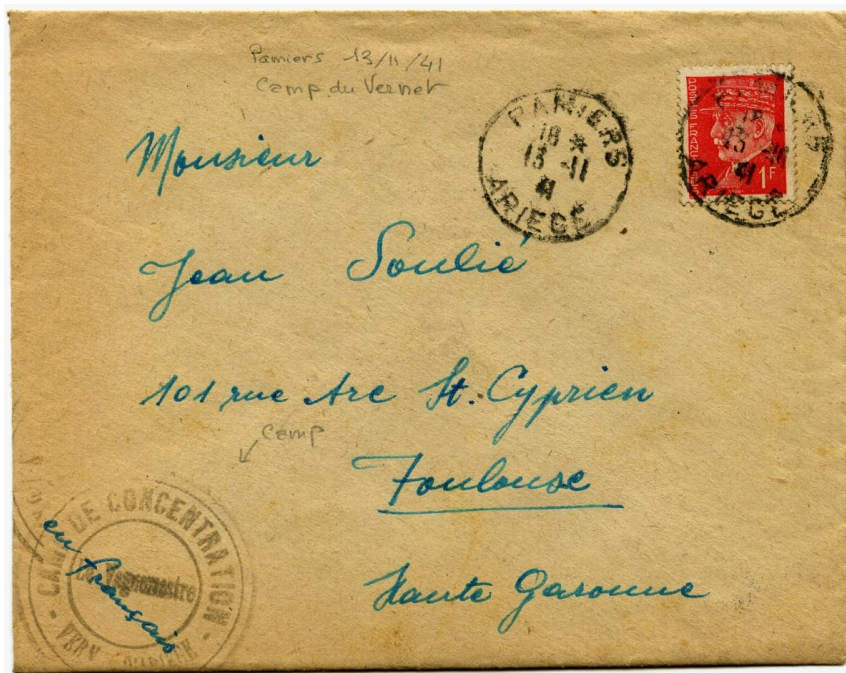 Pamiers 13/11/41
Camp du Vernet
PAMIERS
18 *
13 -11
41
ARIEGE
POSTES FRANÇAISES
1F
PAMIERS
18
13 -11
41
ARIEGE
Monsieur
Jean Soulié
101 rue Arc St. Cyprien
Camp
Toulouse
Haute Garonne
CAMP DE CONCENTRATION
Le Vaguemestre
en français